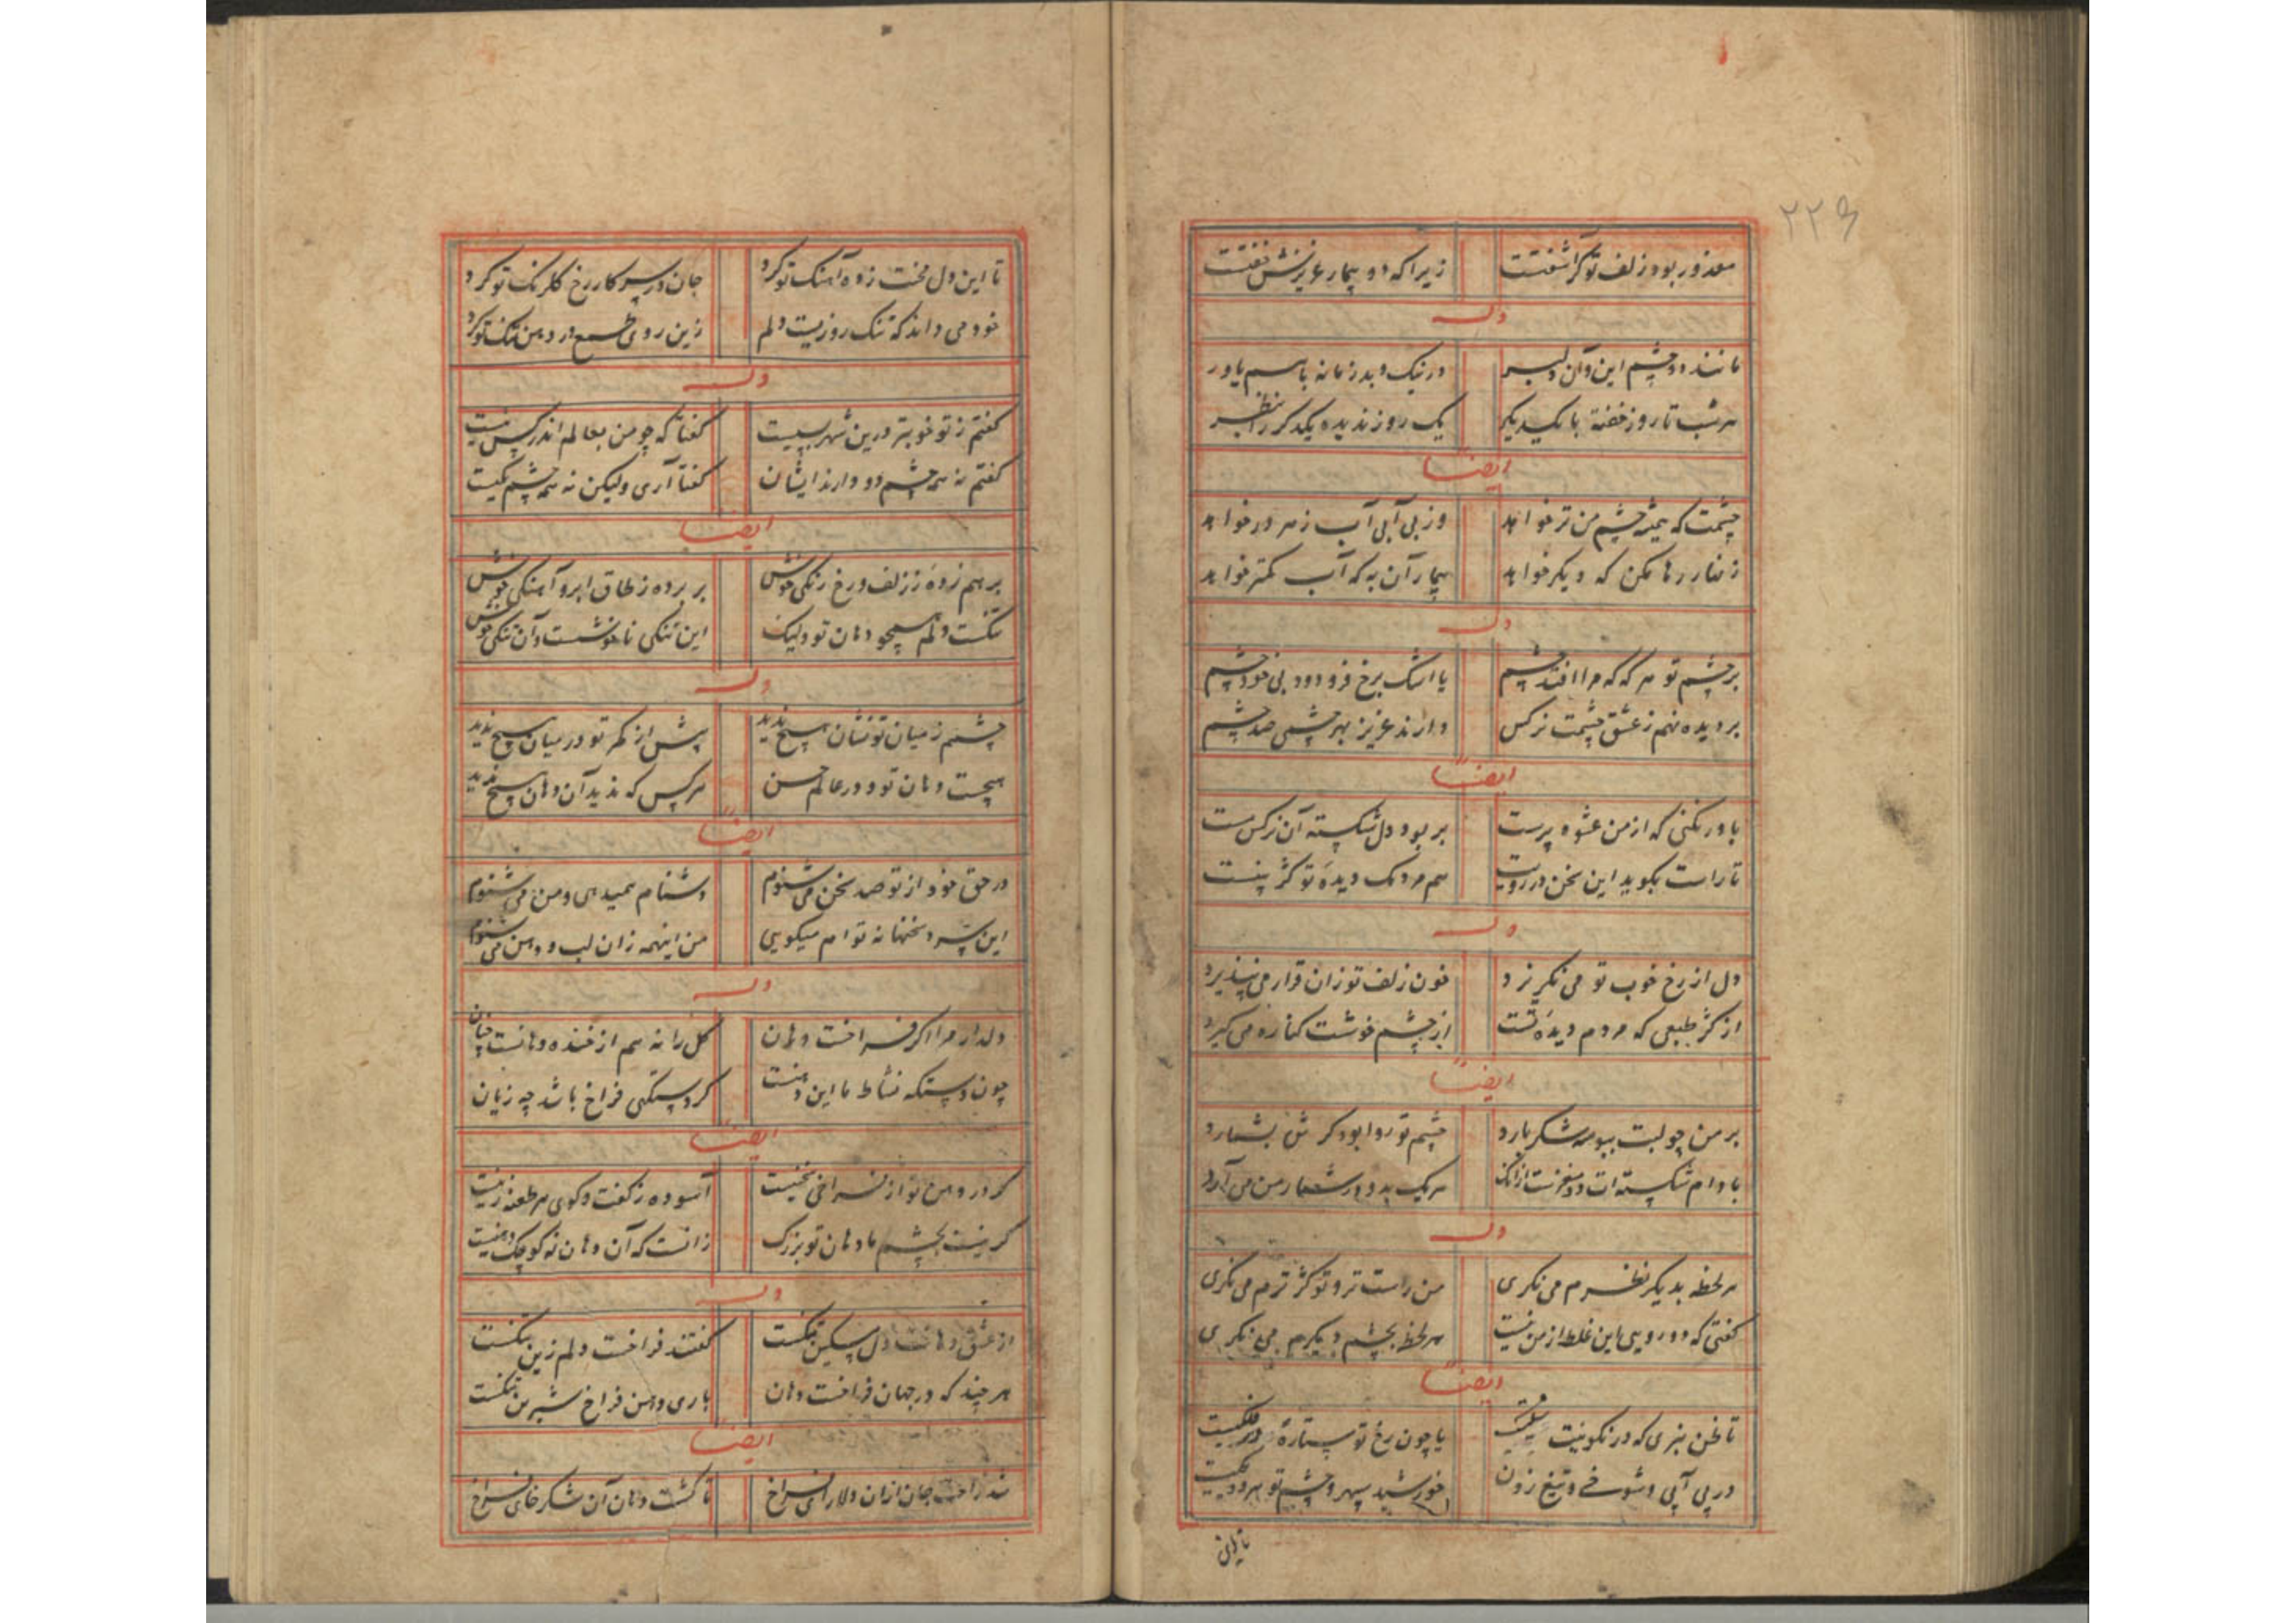 ۲۲۶
معذور بود زلف تو گر آشفتست زیرا که دو بیمار عزیزش خفتست
وله
مانند دو چشم این و آن دلبر در نیک و بد زمانه باهم یاور
هر شب تا روز خفته با یکدیگر یک روز ندیده یکدگر را بنظر
ایضاً
چشمت که همیشه چشم من تر خواهد وز بی آبی آب ز هر در خواهد
زنهار رها مکن که دیگر خواهد بیمار آن به که آب کمتر خواهد
وله
بر چشم تو هر گه که مرا افتد چشم با اشک برخ فرو دود بی خود چشم
بر دیده نهم ز عشق چشمت نرکس دارند عزیز بهر چشمی صد چشم
ایضاً
باور نکنی که از من عشوه پرست بر بود دل شکسته آن نرکس مست
تا راست بکوید این سخن در رویت هم مردمک دیدهٔ تو کژ بنشست
وله
دل از رخ خوب تو می نکریزد خون زلف تو زان قرار می نپذیرد
از کژ طبعی که مردم دیدهٔ تست از چشم خوشت کناره می کیرد
ایضاً
بر من چو لبت ببوسه شکر بارد چشم تو روا بود کرش بشمارد
بادام شکسته ات دو مغزست ازانک هر یک بدو در شمار من می آرد
وله
هر لحظه بدیکر نظرم می نکری من راست ترم تو کژ ترم می نکری
کفتی که دو رویی این غلط از من نیست هر لحظه بچشم دیکرم می نکری
ایضاً
تا ظن نبری که در نکوییت شکیست یا چون رخ تو ستارهٔ در فلکیست
در بی آبی و شوخی و تیغ زدن خورشید سپهر و چشم تو هر دو یکیست
تا این
تا این دل محنت زده آهنک تو کرد جان در سر کار رخ کلرنک تو کرد
خود می داند که تنک روزیست دلم زین روی طمع در دهن تنک تو کرد
وله
کفتم ز تو خوبتر درین شهر بسیست کفتا که چو من بعالم اندر کس نیست
کفتم نه همه چشم دو دارند ایشان کفتا آری ولیکن نه همه چشم یکیست
ایضاً
بر هم زدهٔ ز زلف و رخ رنکی خوش بر برده ز طاق ابرو آهنکی خوش
تنکست دلم همچو دهان تو ولیک این تنکی ناخوشست و آن تنکی خوش
وله
چشمم ز میان تو نشان هیچ ندید پیش از کمر تو در میان هیچ ندید
هیچست دهان تو و در عالم حسن هر کس که ندید آن دهان هیچ ندید
ایضاً
در حق خود از تو صد سخن می شنوم دشنام همیدهی و من می شنوم
این سرد سخنها نه توام میکویی من اینهمه زان لب و دهن می شنوم
وله
دلدار مرا اکر فراخست دهان کل را نه هم از خنده دهانست چنان
چون دستکه نشاط ما این دهنست کر دستکهی فراخ باشد چه زیان
ایضاً
کر در دهن تو از فراخی سخنیست آسوده ز کفت و کوی هر طعنه زنیست
کر نیست بچشم ما دهان تو بزرک زانست که آن دهان نه کوچک دهنیست
وله
از عشق دهانت دل مسکین تنکست کفتند فراخست دلم زین تنکست
هر چند که در جهان فراخست دهان باری دهن فراخ شیرین تنکست
ایضاً
شد راحت جان ازان دلارای فراخ تا کشت دهان آن شکر خای فراخ